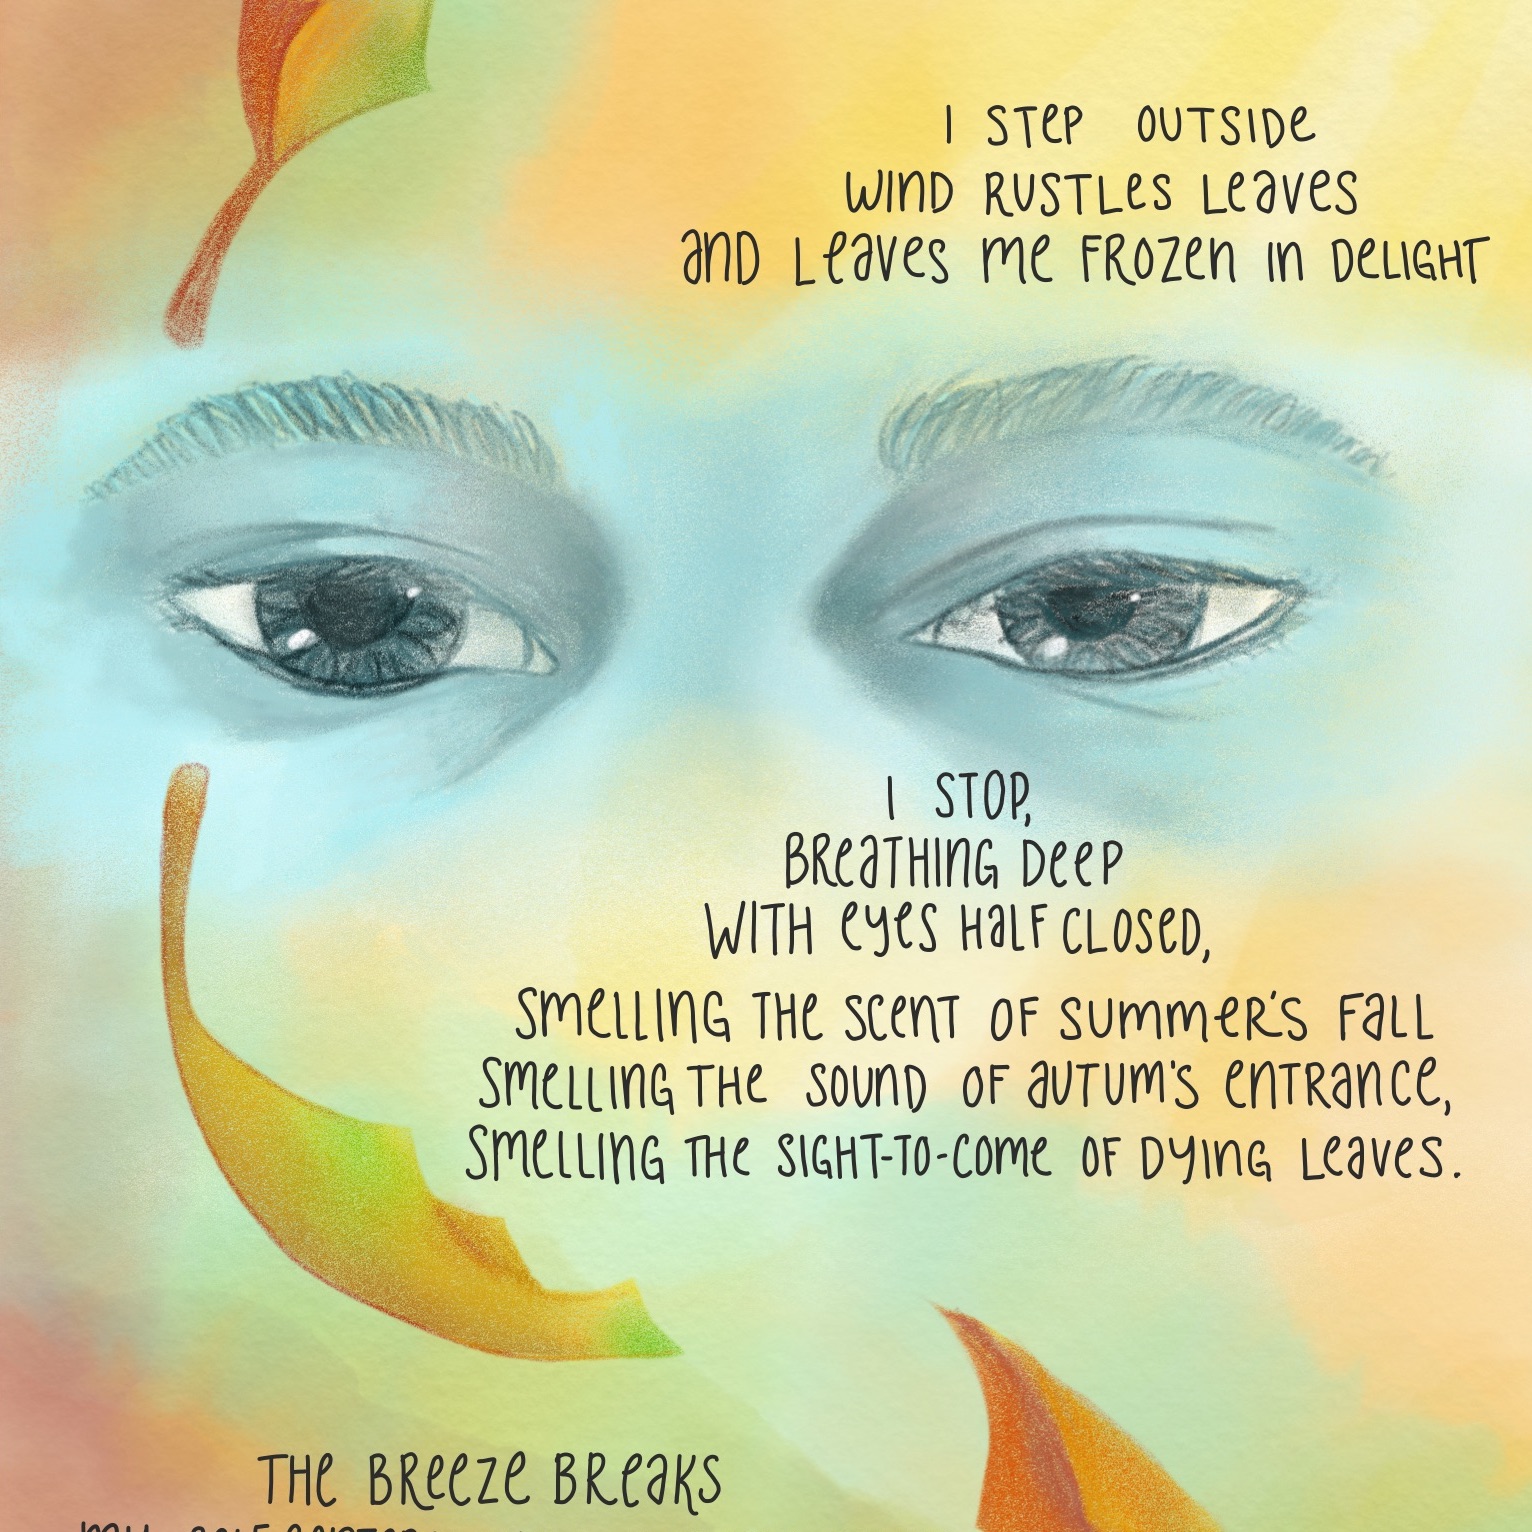 I STEP OUTSIDE
WIND RUSTLES LEAVES
AND LEAVES ME FROZEN IN DELIGHT
I STOP,
BREATHING DEEP
WITH EYES HALF CLOSED,
SMELLING THE SCENT OF SUMMER'S FALL
SMELLING THE SOUND OF AUTUM'S ENTRANCE,
SMELLING THE SIGHT-TO-COME OF DYING LEAVES.
THE BREEZE BREAKS
MY